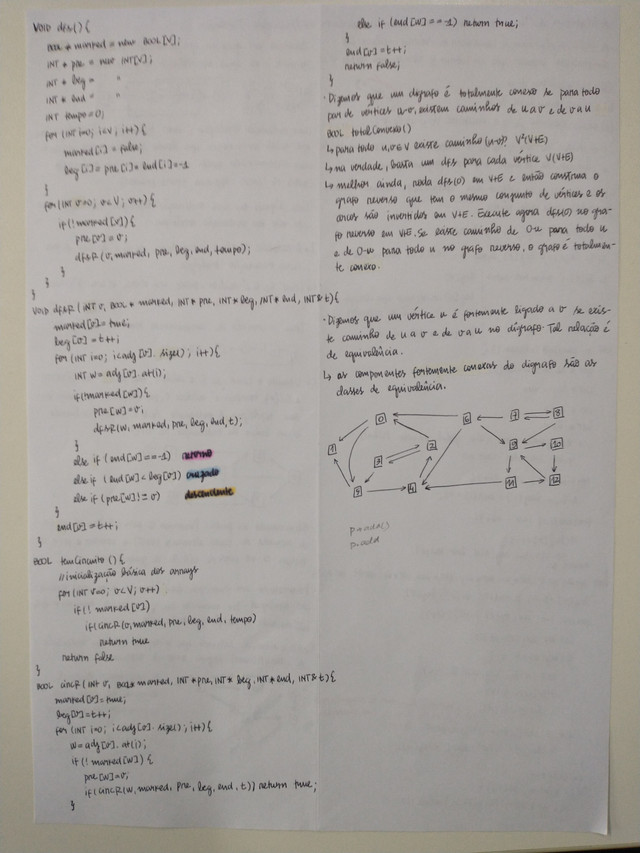 VOID dfs() {
BOOL * marked = new BOOL[V];
INT * pre = new INT[V];
INT * beg = "
INT * end = "
INT tempo = 0;
for (INT i=0; i<V; i++) {
marked[i] = false;
beg[i] = pre[i] = end[i] = -1
}
for (INT v=0; v<V; v++) {
if (!marked[v]) {
pre[v] = v;
dfsR (v, marked, pre, beg, end, tempo);
}
}
}
VOID dfsR (INT v, BOOL * marked, INT * pre, INT * beg, INT * end, INT & t) {
marked[v] = true;
beg[v] = t++;
for (INT i=0; i<adj[v].size(); i++) {
INT w = adj[v].at(i);
if (!marked[w]) {
pre[w] = v;
dfsR (w, marked, pre, beg, end, t);
}
else if (end[w] == -1) retorno
else if (end[w] < beg[v]) cruzado
else if (pre[w] != v) descendente
}
end[v] = t++;
}
BOOL temCircuito () {
// inicialização básica dos arrays
for (INT v=0; v<V; v++)
if (! marked[v])
if (circR (v, marked, pre, beg, end, tempo)
return true
return false
}
BOOL circR (INT v, BOOL * marked, INT * pre, INT * beg, INT * end, INT & t) {
marked[v] = true;
beg[v] = t++;
for (INT i=0; i<adj[v].size(); i++) {
w = adj[v].at(i);
if (! marked[w]) {
pre[w] = v;
if (circR (w, marked, pre, beg, end, t)) return true;
}
else if (end[w] == -1) return true;
}
end[v] = t++;
return false;
}
· Dizemos que um digrafo é totalmente conexo se para todo
par de vértices u-v, existem caminhos de u a v e de v a u
BOOL totalConexo()
↳ para todo u,v ∈ V existe caminho (u-v)? V²(V+E)
↳ na verdade, basta um dfs para cada vértice V(V+E)
↳ melhor ainda, roda dfs(0) em V+E e então construa o
grafo reverso que tem o mesmo conjunto de vértices e os
arcos são invertidos em V+E. Execute agora dfs(0) no gra-
fo reverso em V+E. Se existe caminho de 0-u para todo u
e de 0-u para todo u no grafo reverso, o grafo é totalmen-
te conexo.
· Dizemos que um vértice u é fortemente ligado a v se exis-
te caminho de u a v e de v a u no digrafo. Tal relação é
de equivalência.
↳ as componentes fortemente conexas do digrafo são as
classes de equivalência.
0 6 7 8
1 2 9 10
3
5 4 11 12